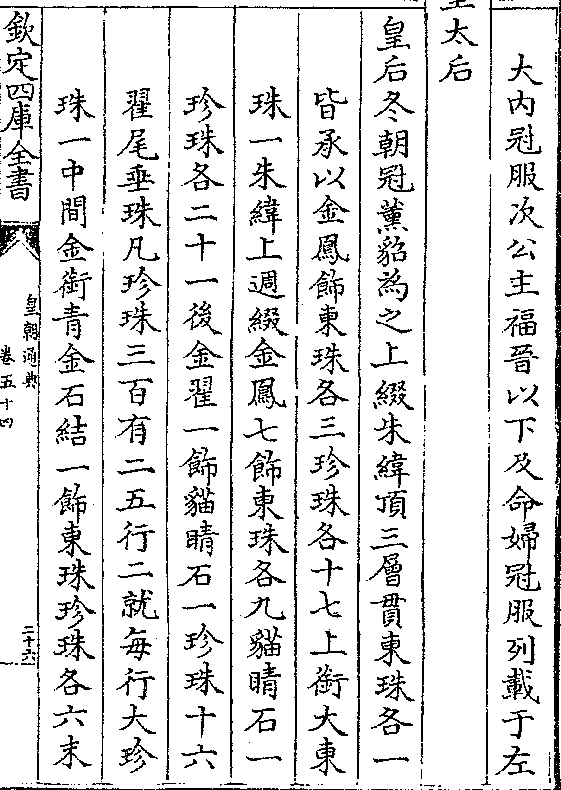 大内冠服次公主福晉以下及命婦冠服列載于左
皇太后
皇后冬朝冠薰貂為之上綴朱緯頂三層貫東珠各一
皆承以金鳳飾東珠各三珍珠各十七上銜大東
珠一朱緯上週綴金鳳七飾東珠各九貓睛石一
珍珠各二十一後金翟一飾貓睛石一珍珠十六
翟尾垂珠凡珍珠三百有二五行二就每行大珍
珠一中間金銜青金石結一飾東珠珍珠各六末
欽定四庫全書
皇朝通典
卷五十四
二十六